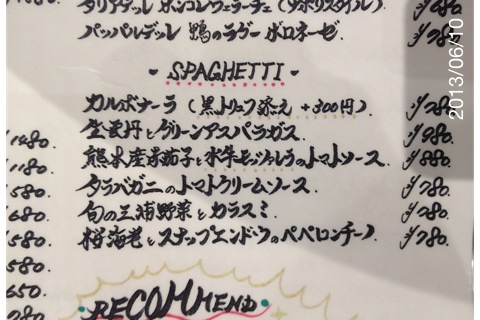 タリアテッレ ボンゴレヴェラーチェ(ナポリスタイル) ¥1680.
パッパルデッレ 鴨のラグー ボロネーゼ ¥1780.
SPAGHETTI
カルボナーラ(黒トリュフ添え +300円) ¥1780.
生雲丹とグリーンアスパラガス ¥1980.
熊本産赤茄子と水牛モッツァレラのトマトソース ¥1880.
タラバガニのトマトクリームソース ¥1780.
旬の三浦野菜とカラスミ ¥1780.
桜海老とスナップエンドウのペペロンチーノ ¥1780.
RECOMMEND
¥1480.
1180.
580.
680.
580.
580.
650.
980
2013/06/10